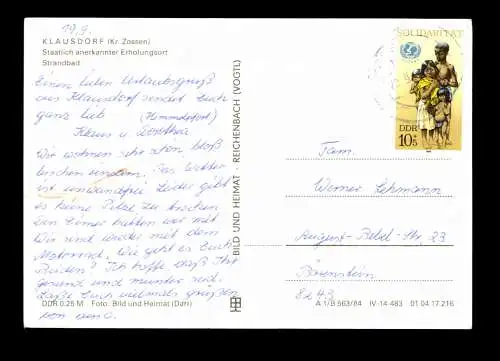 19.9.
KLAUSDORF (Kr. Zossen)
Staatlich anerkannter Erholungsort
Strandbad
Einen lieben Urlaubsgruß
aus Klausdorf sendet Euch
ganz lieb (Himmelpfort)
Klaus u. Dorothea
Wir wohnen sehr schön bloß
bischen einsam. Das Wetter
ist einwandfrei Leider gibt
es keine Pilze zu suchen
Den Eimer hatten wir mit
Wir sind wieder mit dem
Motorrad. Wie geht es Euch
Beiden? Ich hoffe daß Ihr
Gesund und munter seid.
Laße Euch vielmals grüßen
von
DDR 0,25 M Foto: Bild und Heimat (Darr)
BILD UND HEIMAT · REICHENBACH (VOGTL)
SOLIDARITÄT
DDR
10+5
Fam.
Werner Lehmann
August-Bebel-Str. 23
Bärenstein
8243
A 1/B 563/84 IV-14-483 01 04 17 216